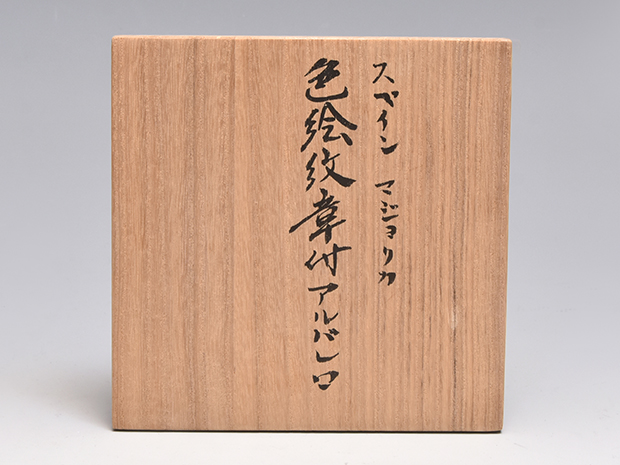 スペイン マジョリカ
色絵紋章付アルバレロ